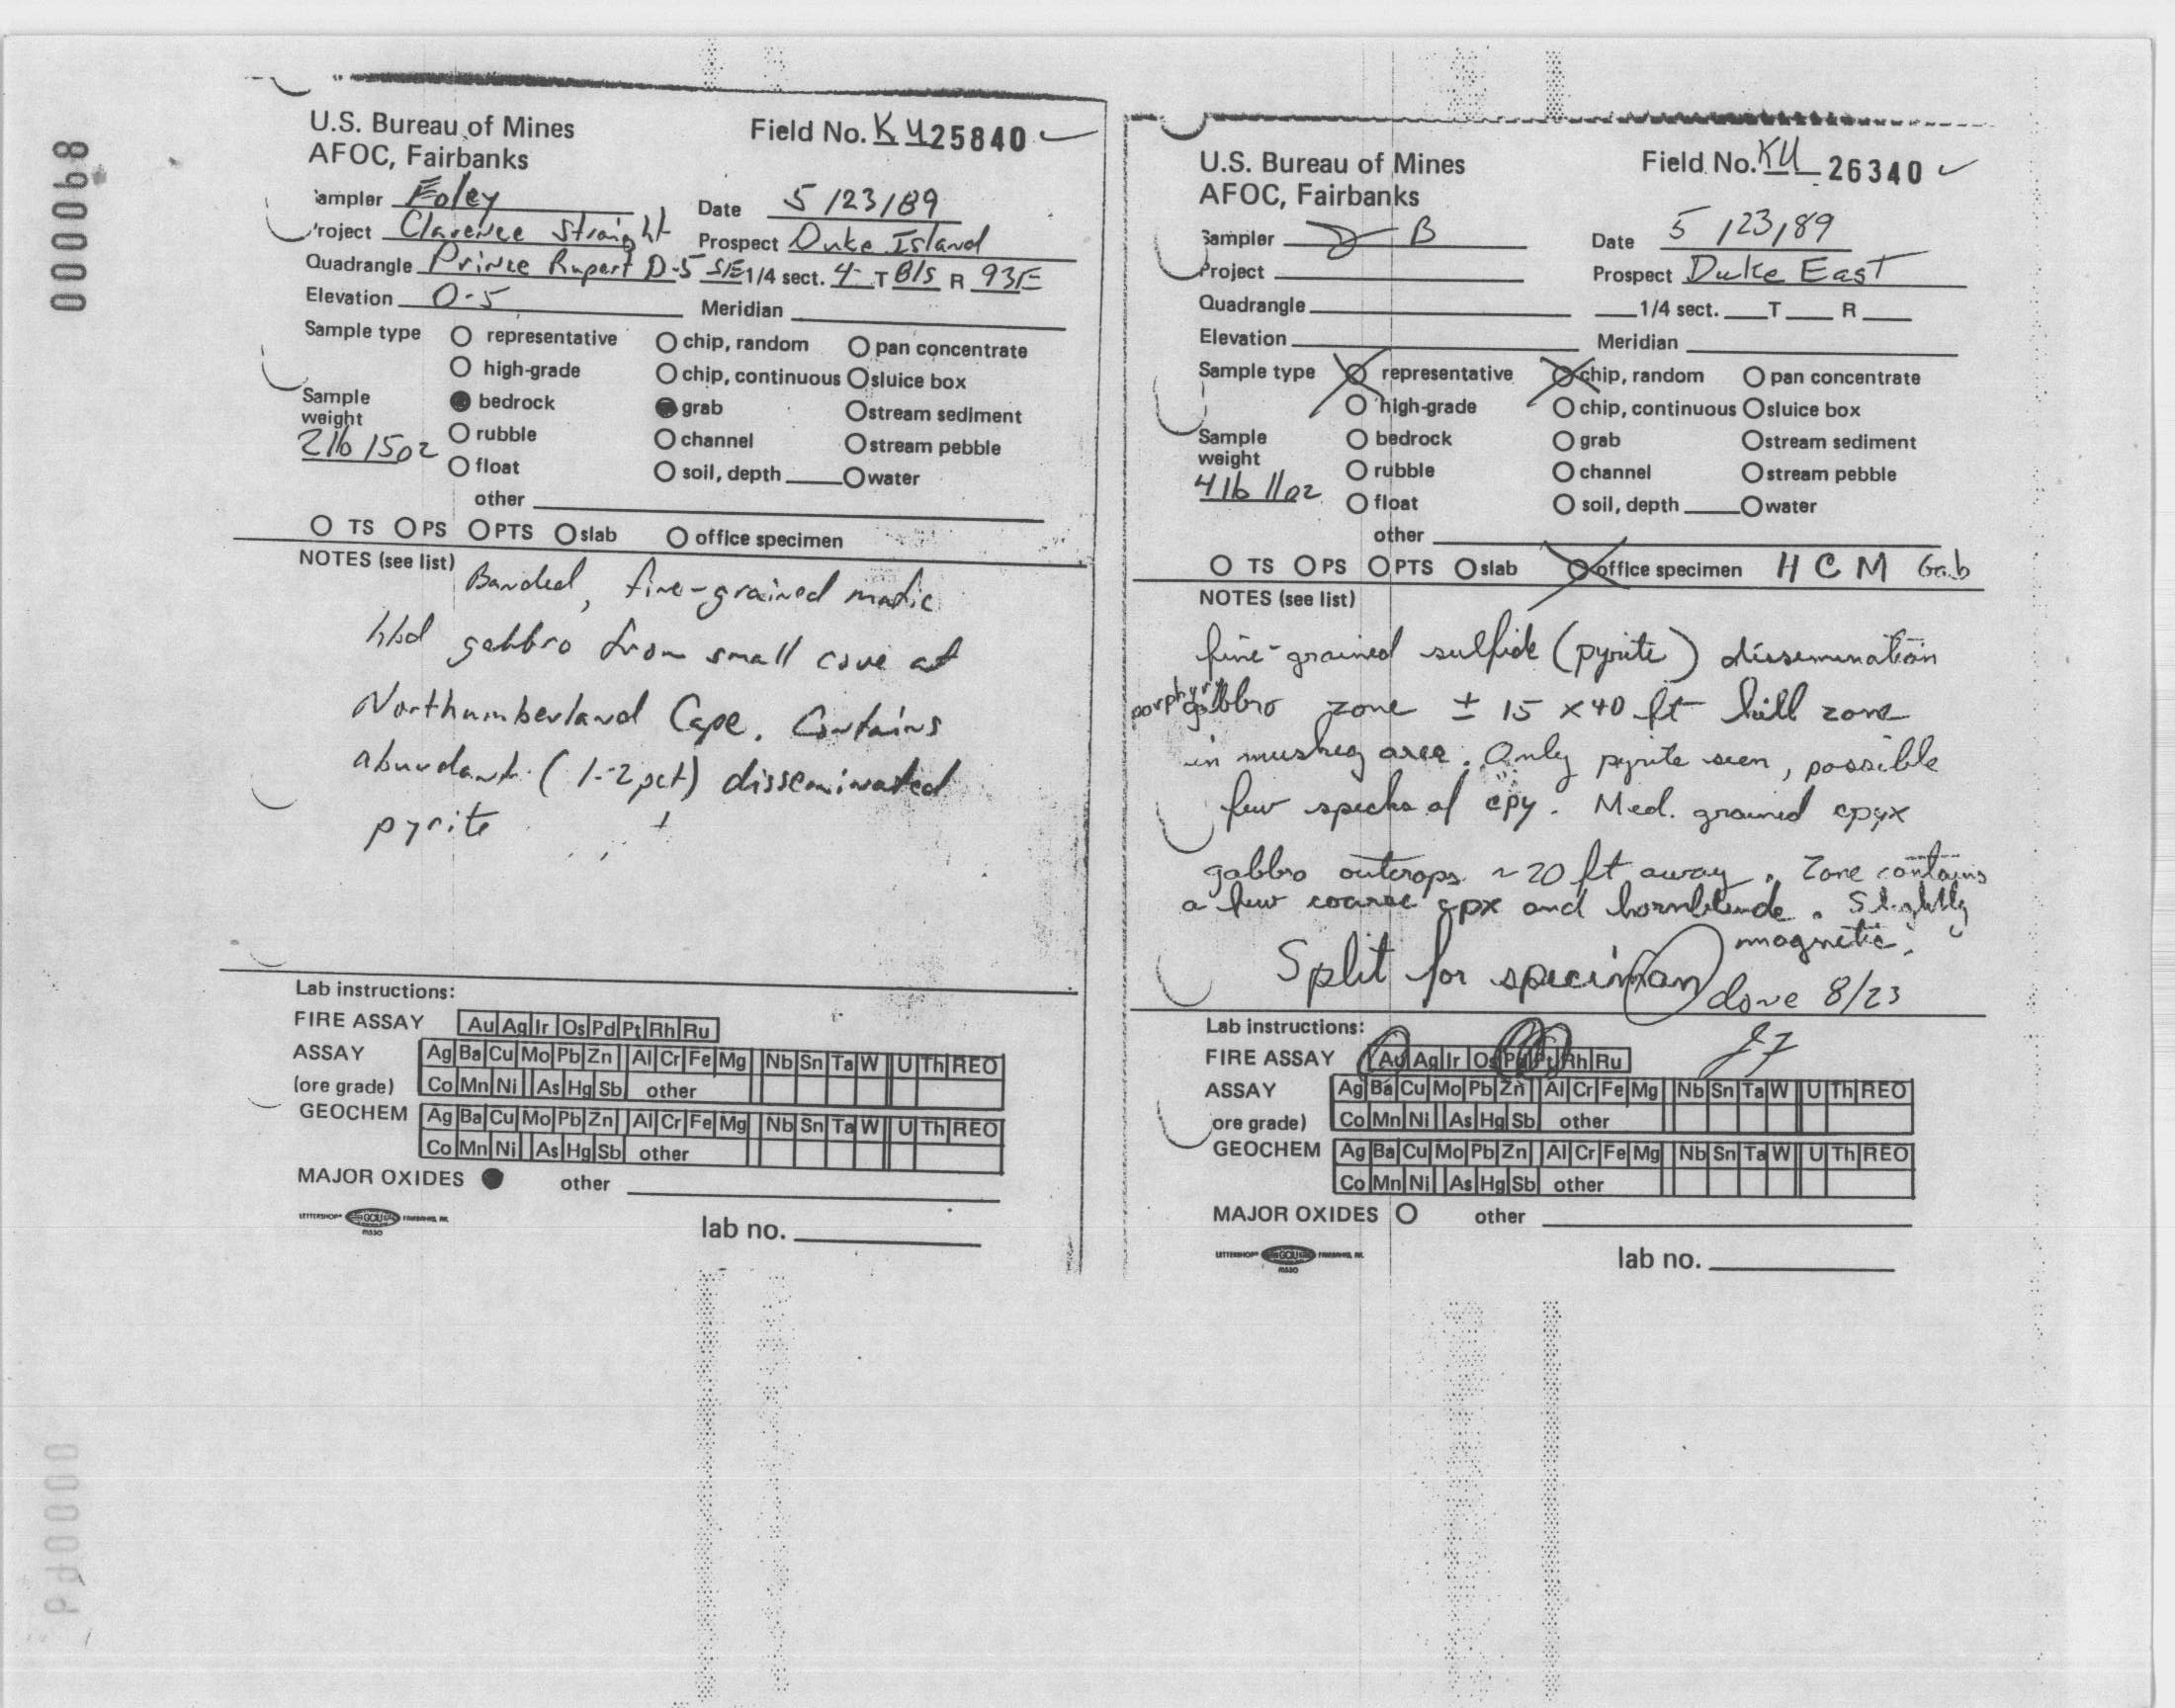 000068
U.S. Bureau of Mines
AFOC, Fairbanks
Field No. KU 25840 ✓
Sampler Foley
Date 5/23/89
Project Clarence Straight
Prospect Duke Island
Quadrangle Prince Rupert D-5 SE 1/4 sect. 4 T 81S R 93E
Elevation 0-5
Meridian
Sample type
○ representative ○ chip, random ○ pan concentrate
○ high-grade ○ chip, continuous ○ sluice box
Sample weight
2lb 15oz
● bedrock ● grab ○ stream sediment
○ rubble ○ channel ○ stream pebble
○ float ○ soil, depth ○ water
other
○ TS ○ PS ○ PTS ○ slab ○ office specimen
NOTES (see list)
Banded, fine-grained mafic
hbd gabbro from small cove at
Northumberland Cape. Contains
abundant (1-2 pct) disseminated
pyrite
Lab instructions:
FIRE ASSAY Au Ag Ir Os Pd Pt Rh Ru
ASSAY Ag Ba Cu Mo Pb Zn Al Cr Fe Mg Nb Sn Ta W U Th REO
(ore grade) Co Mn Ni As Hg Sb other
GEOCHEM Ag Ba Cu Mo Pb Zn Al Cr Fe Mg Nb Sn Ta W U Th REO
Co Mn Ni As Hg Sb other
MAJOR OXIDES ● other
LETTERSHOP GCIU FAIRBANKS, AK.
lab no.
U.S. Bureau of Mines
AFOC, Fairbanks
Field No. KU 26340 ✓
Sampler B
Date 5/23/89
Project
Prospect Duke East
Quadrangle 1/4 sect. T R
Elevation
Meridian
Sample type
○ representative ○ chip, random ○ pan concentrate
○ high-grade ○ chip, continuous ○ sluice box
Sample weight
4lb 11oz
○ bedrock ○ grab ○ stream sediment
○ rubble ○ channel ○ stream pebble
○ float ○ soil, depth ○ water
other
○ TS ○ PS ○ PTS ○ slab ○ office specimen H C M Gab
NOTES (see list)
fine-grained sulfide (pyrite) dissemination
porphyry gabbro zone ± 15 x 40 ft hill zone
in muskeg area. Only pyrite seen, possible
few specks of cpy. Med. grained cpyx
gabbro outcrops ~20 ft away. Zone contains
a few coarse cpx and hornblende. Slightly
magnetic.
Split for speciman done 8/23
JF
Lab instructions:
FIRE ASSAY Au Ag Ir Os Pd Pt Rh Ru
ASSAY Ag Ba Cu Mo Pb Zn Al Cr Fe Mg Nb Sn Ta W U Th REO
ore grade) Co Mn Ni As Hg Sb other
GEOCHEM Ag Ba Cu Mo Pb Zn Al Cr Fe Mg Nb Sn Ta W U Th REO
Co Mn Ni As Hg Sb other
MAJOR OXIDES ○ other
LETTERSHOP GCIU FAIRBANKS, AK.
lab no.